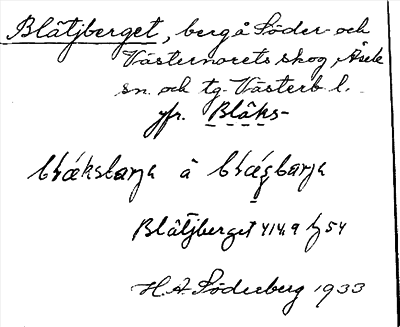 Blåtjberget, berg å Söder- och
Västernorets skog, Åsele
sn. och tg. Västerb. l.
yfr. Blåks-
å
Blåtjberget 414.9 54
H.A. Söderberg 1933